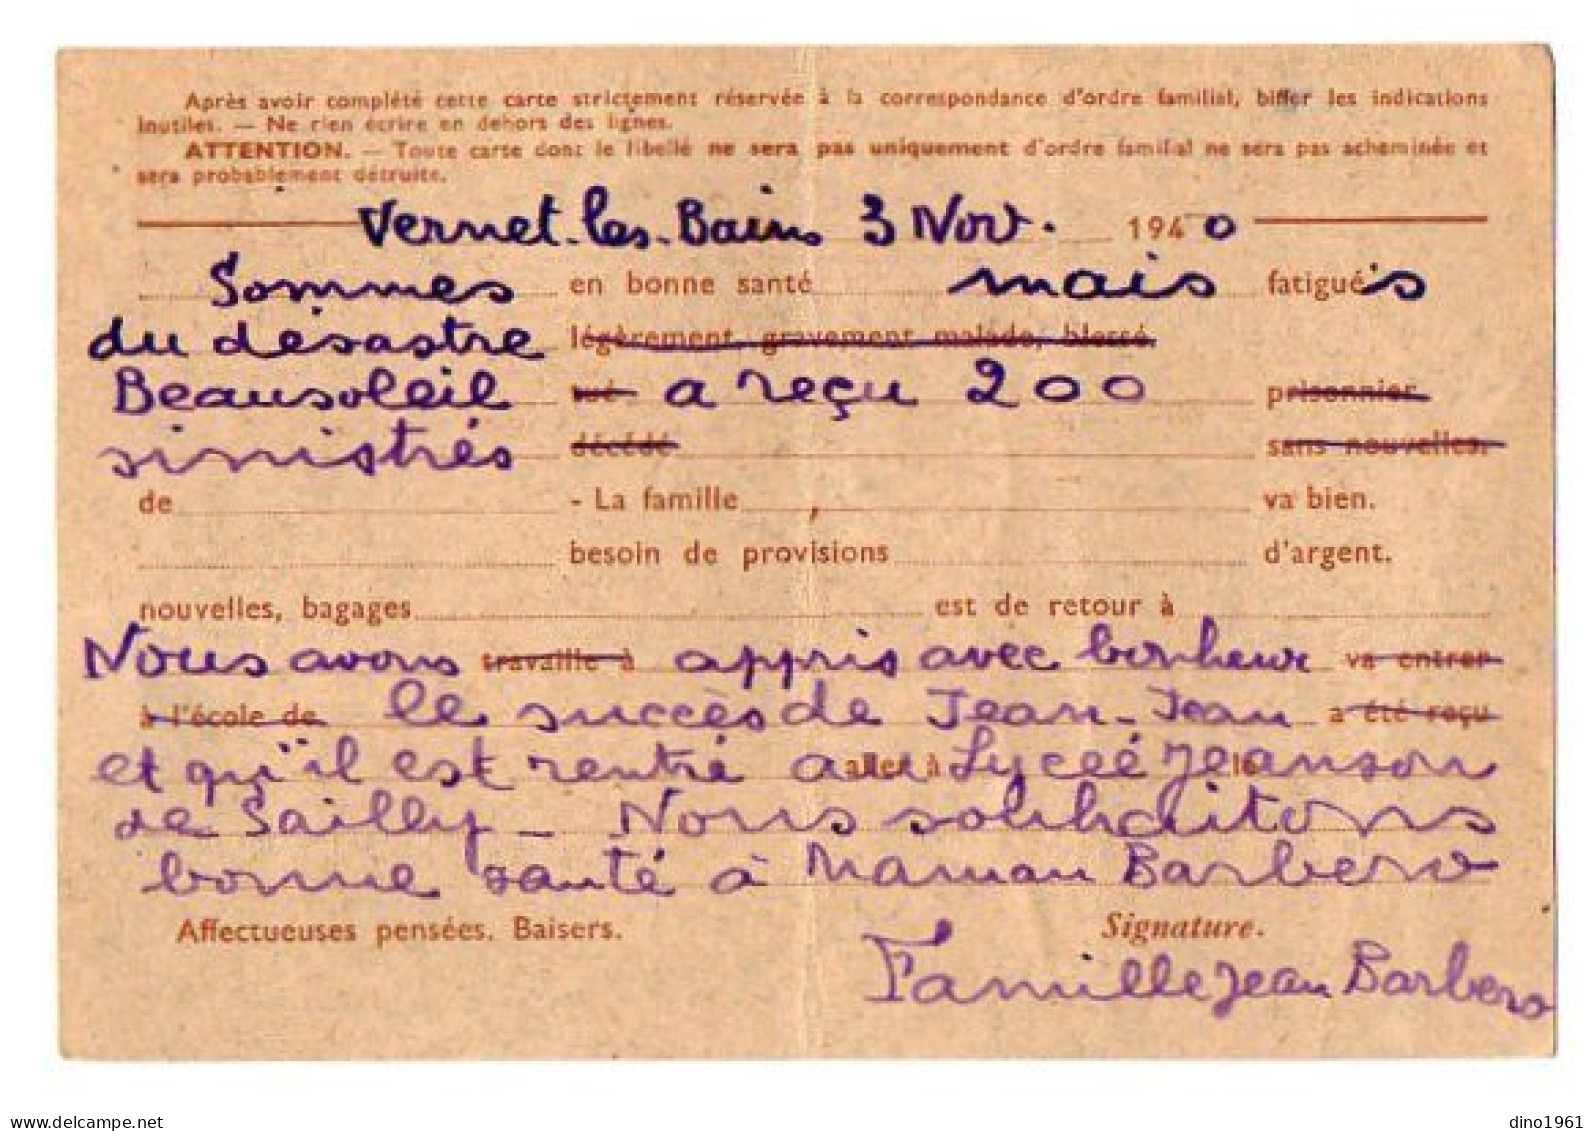 Après avoir complété cette carte strictement réservée à la correspondance d'ordre familial, biffer les indications
inutiles. — Ne rien écrire en dehors des lignes.
ATTENTION. — Toute carte dont le libellé ne sera pas uniquement d'ordre familial ne sera pas acheminée et
sera probablement détruite.
Vernet-les-Bains 3 Nov. 1940
Sommes en bonne santé mais fatigués
du désastre légèrement, gravement malade, blessé
Beausoleil tué a reçu 200 prisonnier
sinistrés décédé sans nouvelles.
de - La famille , va bien.
besoin de provisions d'argent.
nouvelles, bagages est de retour à
Nous avons travaille à appris avec bonheur va entrer
à l'école de le succès de Jean-Jean a été reçu
et qu'il est rentré au aller à Lyceé Jeanson le
de Sailly - Nous souhaitons
bonne santé à Maman Barbero
Affectueuses pensées. Baisers. Signature.
Famille Jean Barbero
https://www.delcampe.net
dino1961